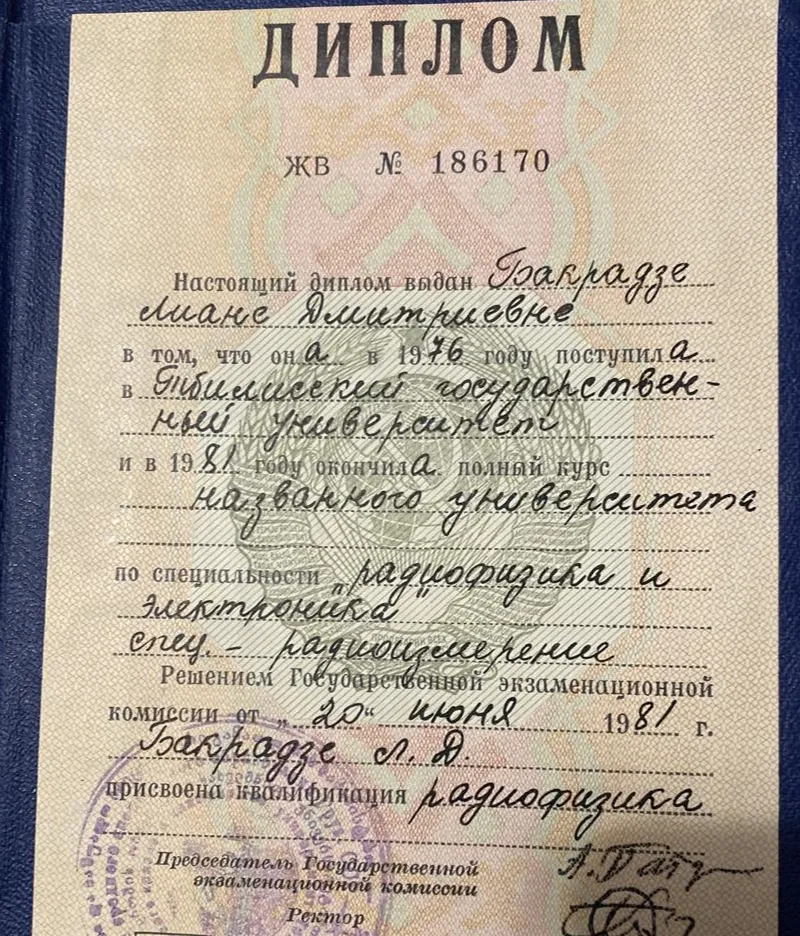 ДИПЛОМ
ЖВ № 186170
Настоящий диплом выдан Бакрадзе
Лиане Дмитриевне
в том, что она в 1976 году поступила
в Тбилисский государствен-
ный университет
и в 1981 году окончила полный курс
названного университета
по специальности „радиофизика и
электроника"
спец. - радиоизмерение
Решением Государственной экзаменационной
комиссии от „20“ июня 1981 г.
Бакрадзе Л. Д.
присвоена квалификация радиофизика
Председатель Государственной
экзаменационной комиссии
Ректор